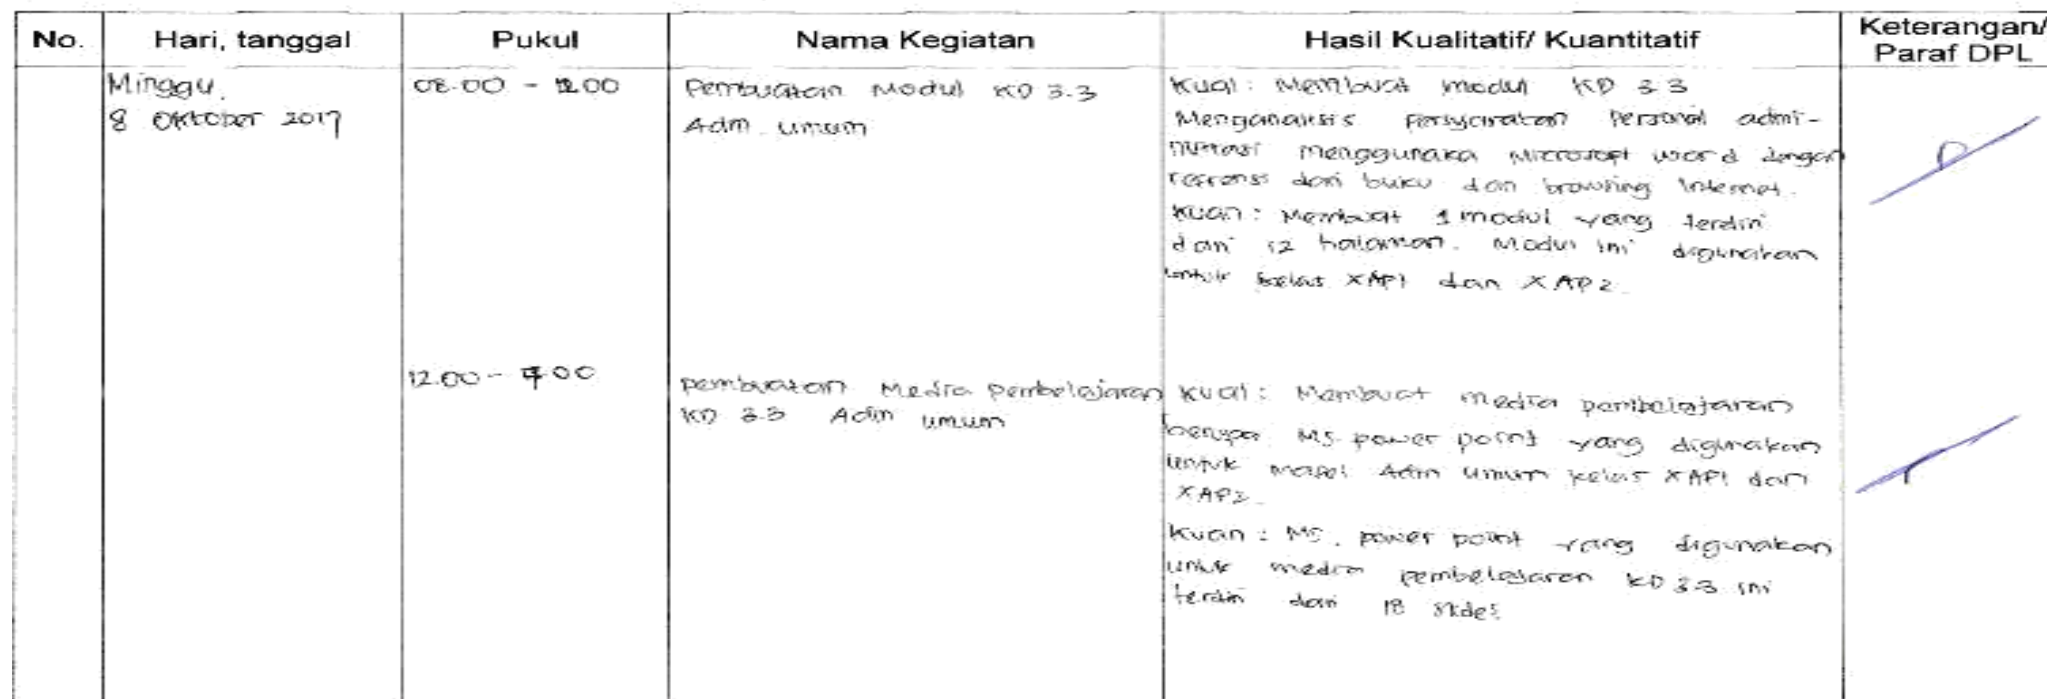 No. Hari, tanggal Pukul Nama Kegiatan Hasil Kualitatif/ Kuantitatif Keterangan/
Paraf DPL
Minggu,
8 Oktober 2017
08.00 - 12.00
Pembuatan Modul KD 3.3
Adm. umum
Kual: Membuat modul KD 3.3
Menganalisis Persyaratan Personil admi-
nistrasi menggunaka Microsoft word dengan
referensi dari buku dan browsing internet.
Kuan: Membuat 1 modul yang terdiri
dari 12 halaman. Modul ini digunakan
untuk kelas XAP1 dan XAP2.
12.00 - 00
pembuatan Media Pembelajaran
KD 3.3 Adm umum
Kual: Membuat media pembelajaran
berupa Ms. power point yang digunakan
untuk mapel Adm umum kelas XAP1 dan
XAP2.
Kuan: Ms. power point yang digunakan
untuk media pembelajaran KD 3.3 ini
terdiri dari 18 slides